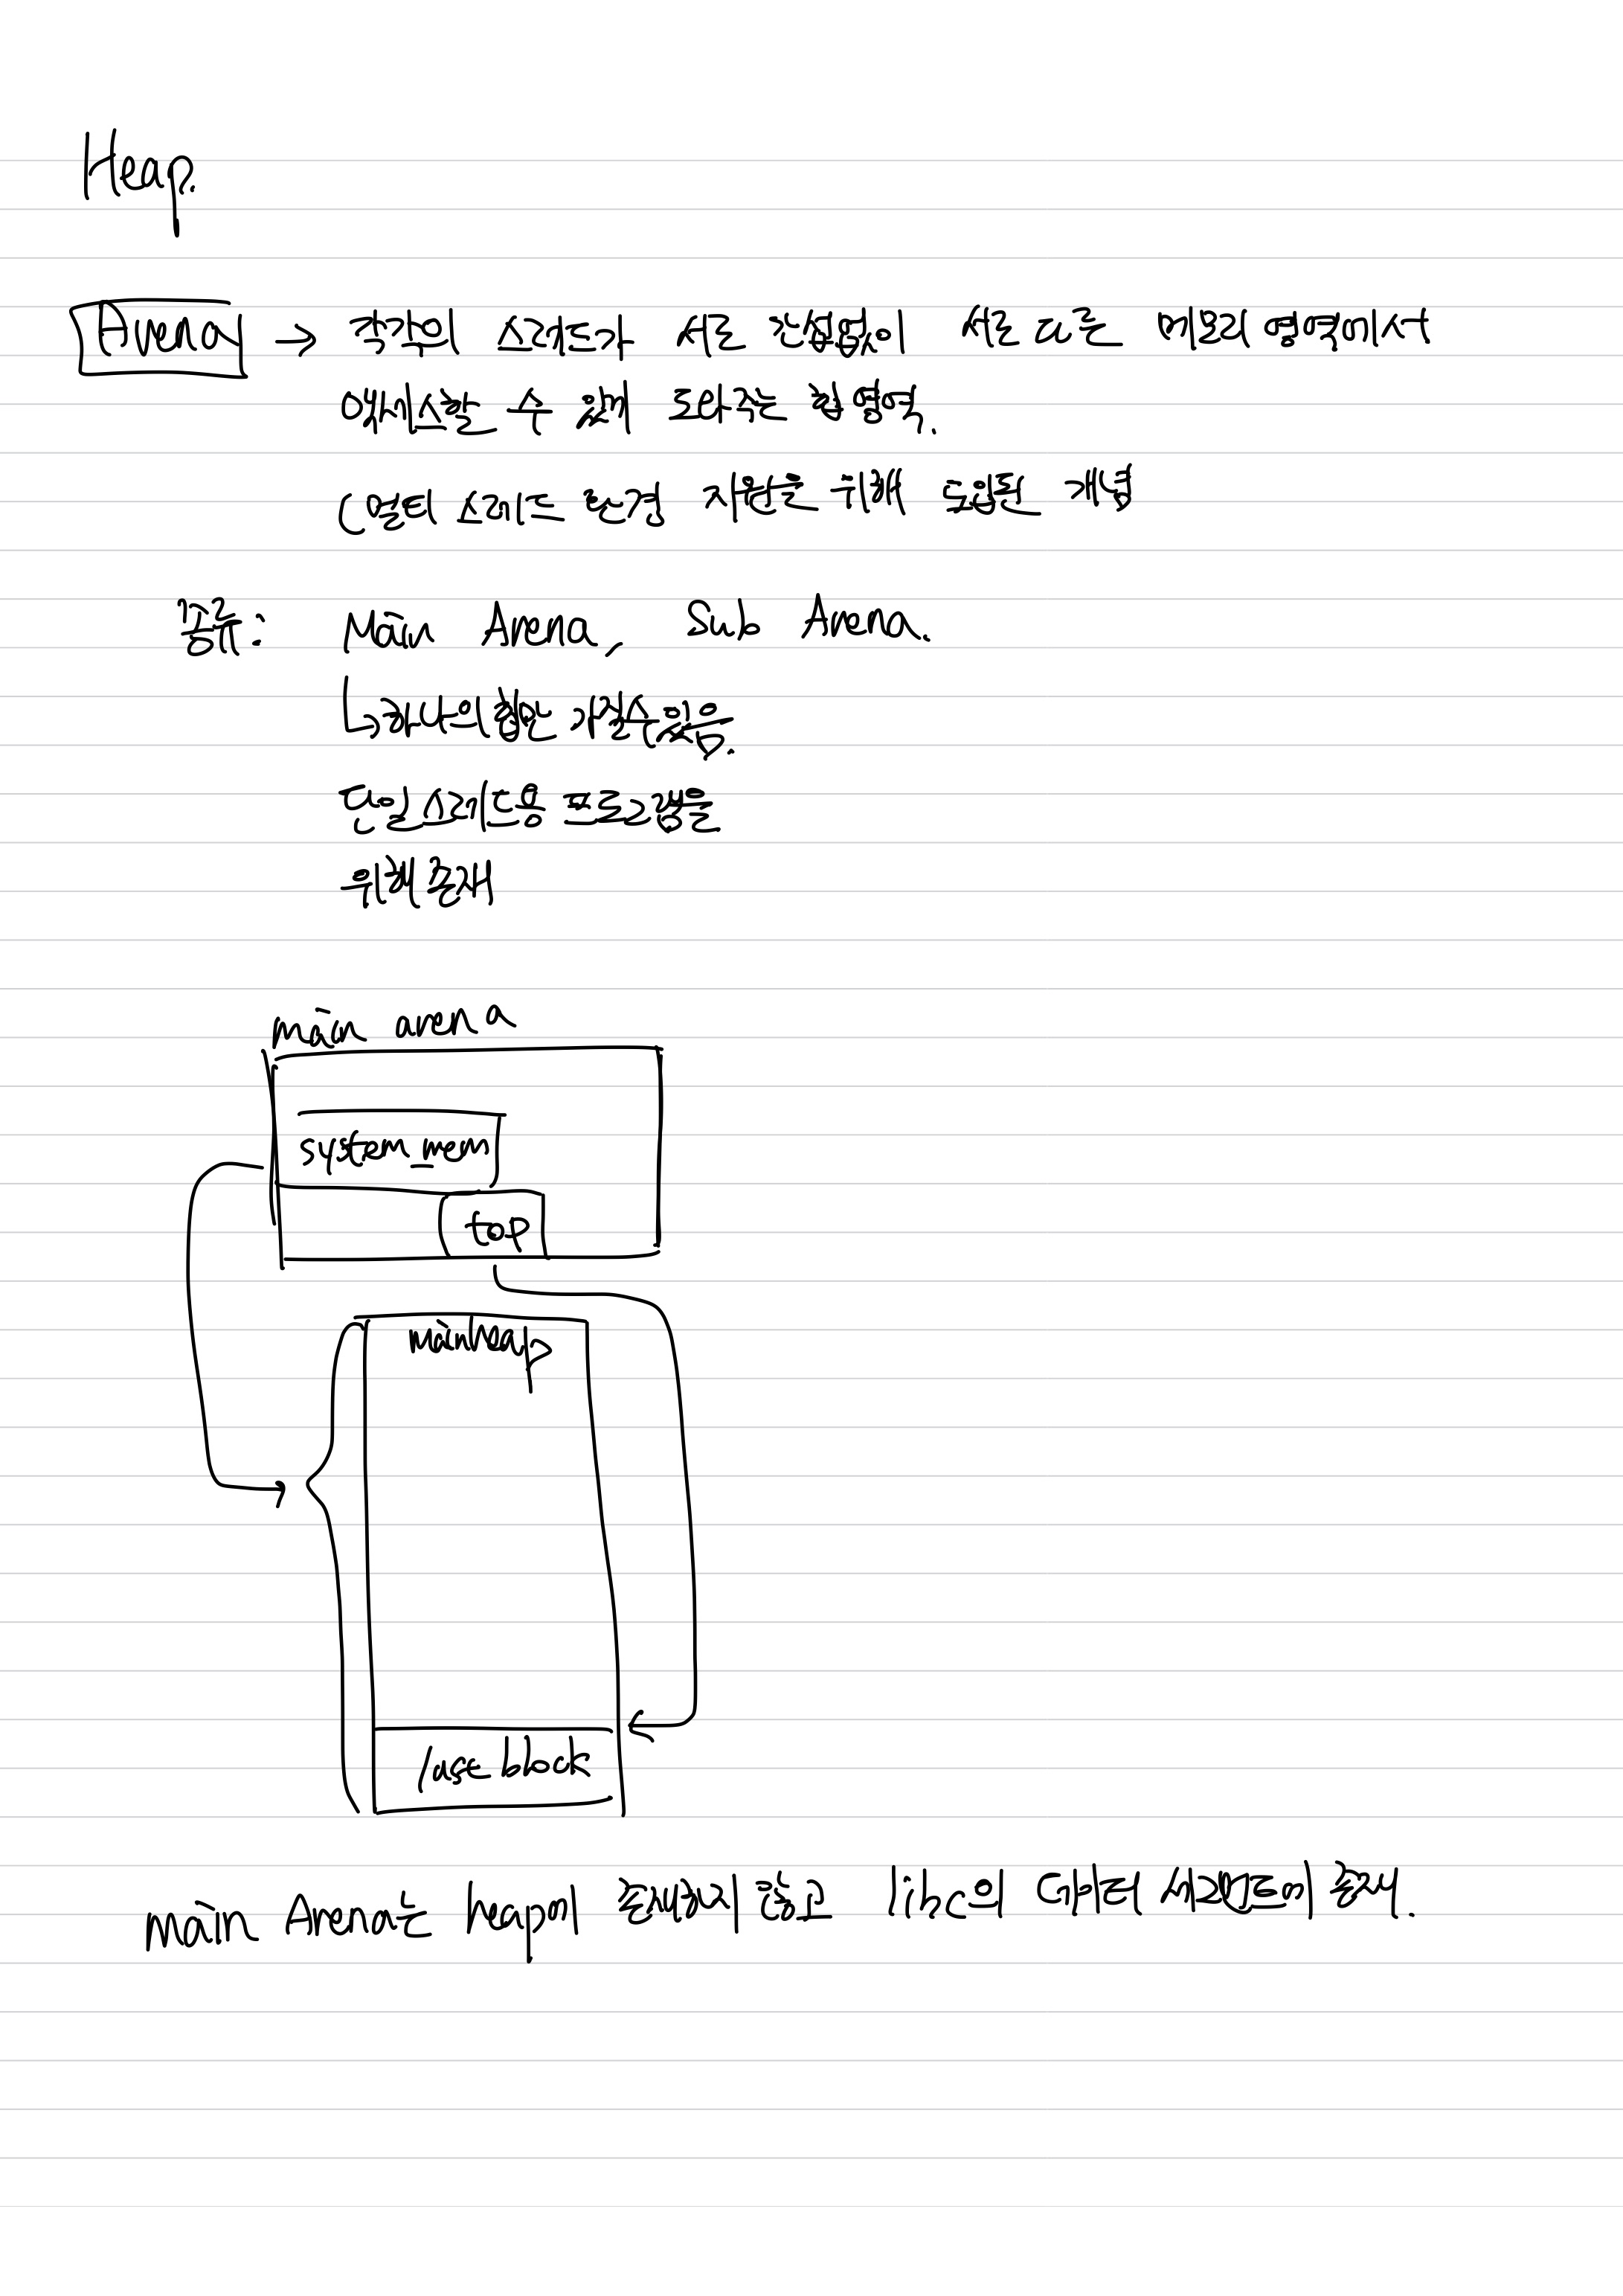 Heap.
Arena → 각각의 스레드가 서로 간섭없이 서로 다른 메모리 영역에서
액세스할 수 있게 도와주는 힙 영역.
(멀티 스레드 환경 지원을 위해 도입된 개념
종류: Main Arena, Sub Arena.
↳하나의 힙만 가질 수 있음.
단일 스레드용 프로그램을
위해 존재
main arena
system_mem
top
main heap
last block
main Arena는 heap에 존재하지 않고 libc의 데이터 세그먼트에 존재.